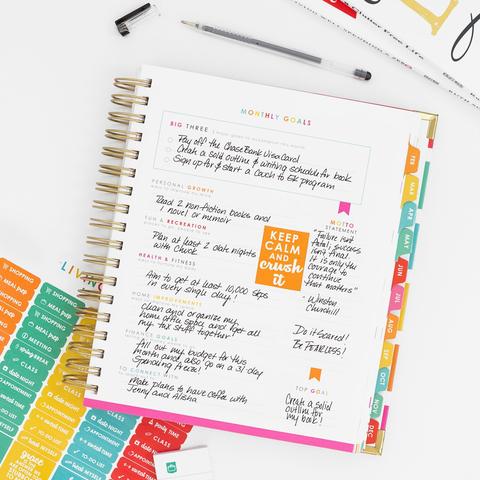 Clutter Free Life
MONTHLY GOALS
BIG THREE
Pay off the Chase Bank Visa Card
Create a solid outline & writing schedule for book
Sign up for & start a Couch to 5K program
PERSONAL GROWTH
Read 2 non-fiction books and
1 novel or memoir
FUN & RECREATION
Plan at least 2 date nights
with Chuck
HEALTH & FITNESS
Aim to get at least 10,000 steps
in every single day!
HOME IMPROVEMENTS
Clean and organize my
home office space and get all
my tax stuff together
FINANCE GOALS
All out my budget for this
month and also go on a 31 day
Spending freeze!
TO CONNECT WITH
Make plans to have coffee with
Jenny and Alisha
KEEP
CALM
AND
crush
it
MOTTO
STATEMENT
"Failure isn't
fatal; success
isn't final.
It is only the
courage to
continue
that matters"
- Winston
Churchill
Do it scared!
Be FEARLESS!
TOP GOAL
Create a solid
outline for
my book!
FEB
MAR
APR
MAY
JUN
JUL
AUG
SEP
OCT
NOV
DEC
LIVING
SHOPPING
MEAL prep
SHOPPING
MEAL prep
spring BREAK
CLASS
date NIGHT
TO-DO LIST
party TIME
CLASS